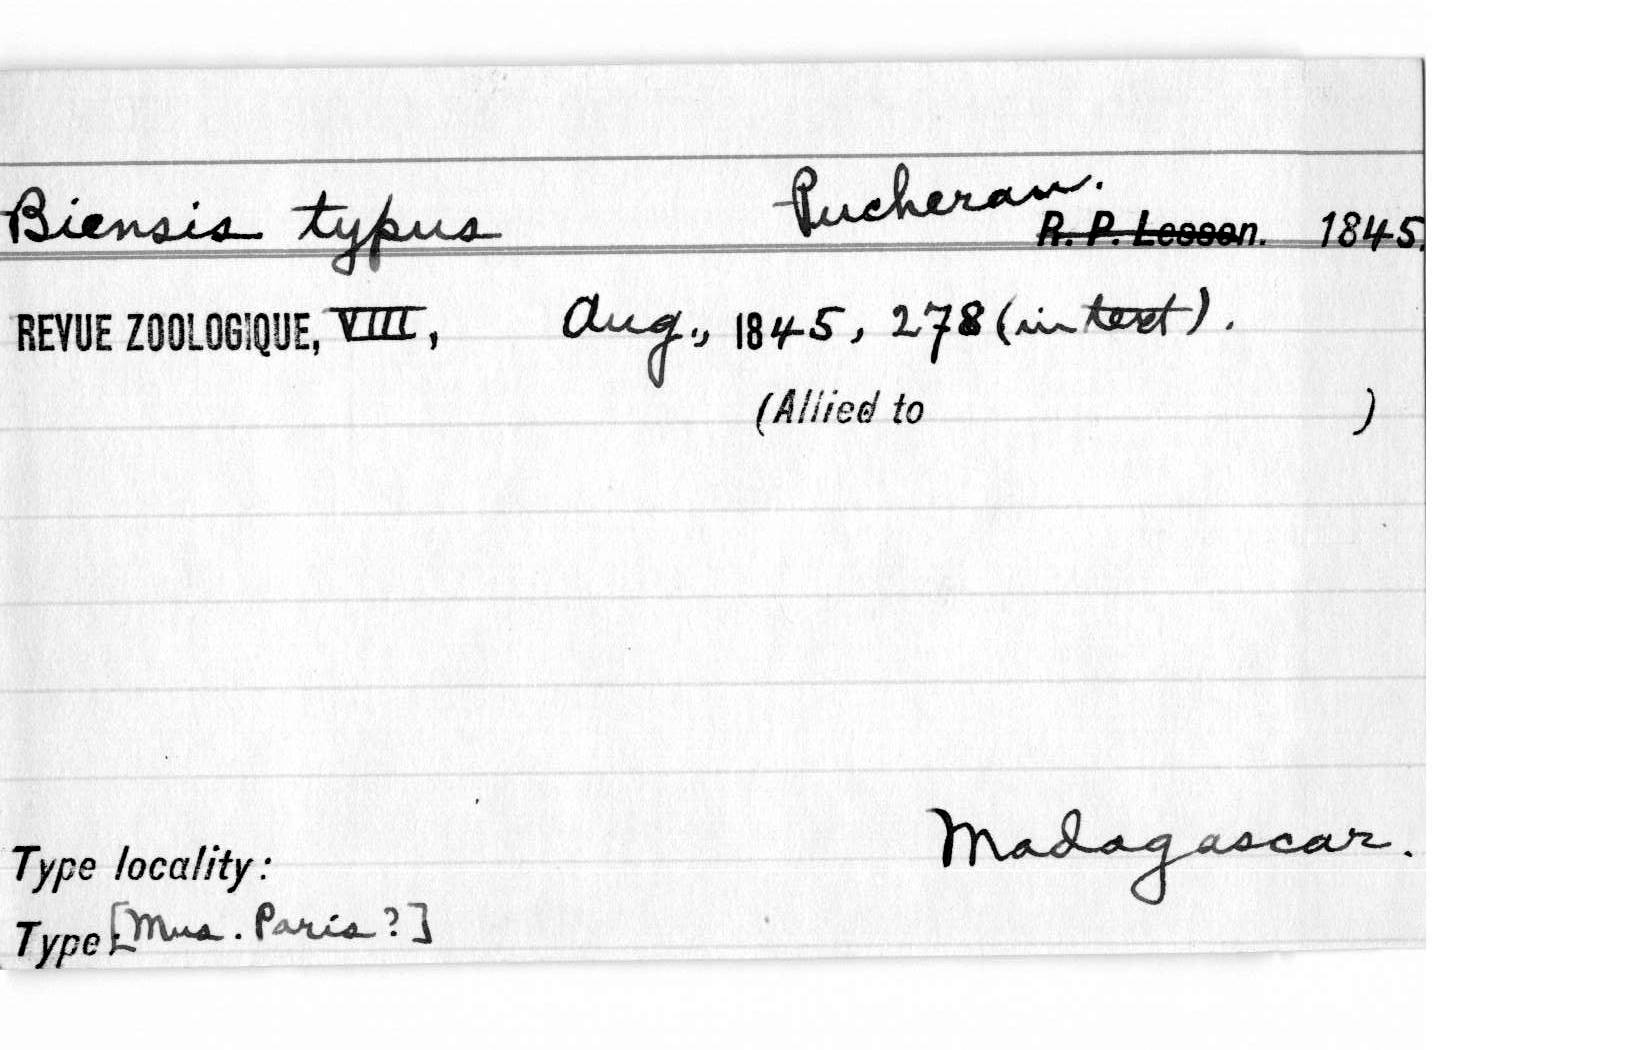 Biensis typus Pucheran. R. P. Lesson. 1845.
REVUE ZOOLOGIQUE, VIII, Aug., 1845, 278 (in text).
(Allied to )
Madagascar.
Type locality:
Type: [Mus. Paris?]